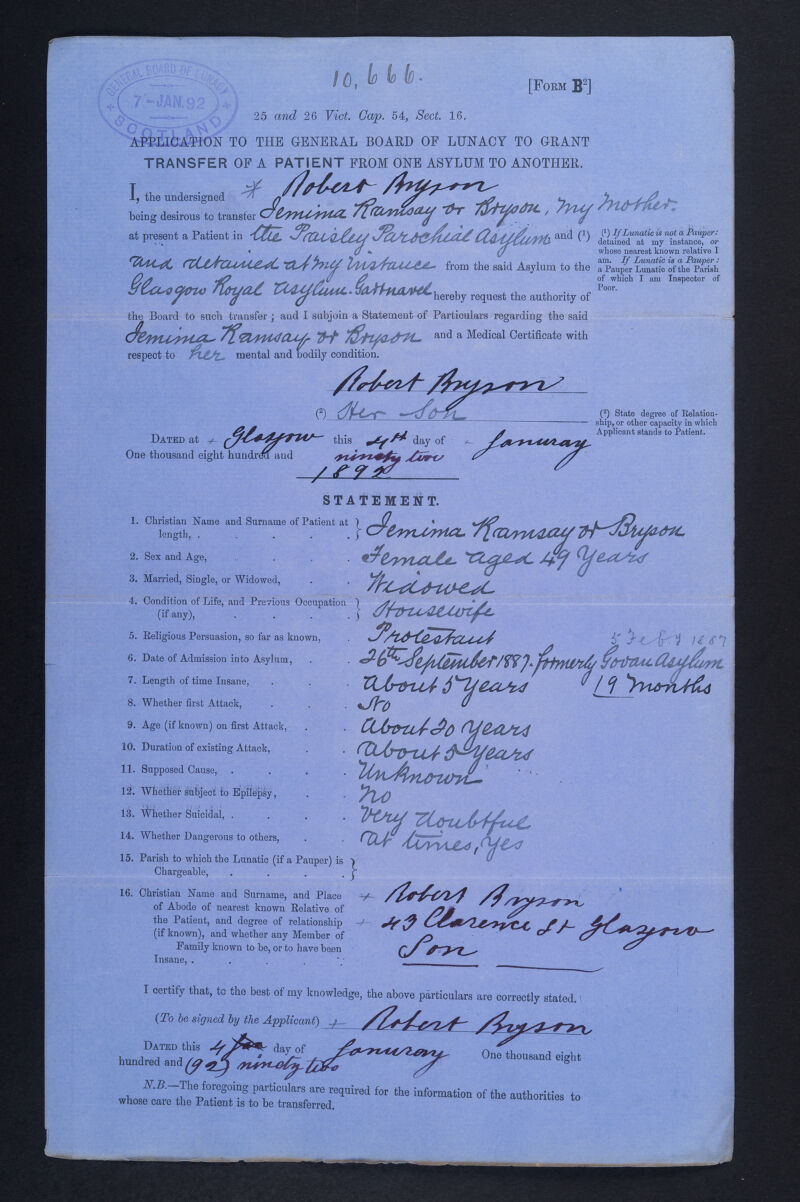 10,666.
[FORM B²]
GENERAL BOARD OF LUNACY
7-JAN.92
SCOTLAND
25 and 26 Vict. Cap. 54, Sect. 16.
APPLICATION TO THE GENERAL BOARD OF LUNACY TO GRANT
TRANSFER OF A PATIENT FROM ONE ASYLUM TO ANOTHER.
I, the undersigned * Robert Bryson
being desirous to transfer Jemima Ramsay or Bryson, my Mother.
at present a Patient in the Paisley Parochial Asylum and (¹)
and detained at my instance from the said Asylum to the
Glasgow Royal Asylum. Gartnavel hereby request the authority of
the Board to such transfer; and I subjoin a Statement of Particulars regarding the said
Jemima Ramsay or Bryson and a Medical Certificate with
respect to her mental and bodily condition.
(¹) If Lunatic is not a Pauper:
detained at my instance, or
whose nearest known relative I
am. If Lunatic is a Pauper:
a Pauper Lunatic of the Parish
of which I am Inspector of
Poor.
Robert Bryson
(²) Her Son
(²) State degree of Relation-
ship, or other capacity in which
Applicant stands to Patient.
DATED at + Glasgow this 4th day of - Januray
One thousand eight hundred and ninety two
1892
STATEMENT.
1. Christian Name and Surname of Patient at length, . . . . . } Jemima Ramsay or Bryson
2. Sex and Age, . . . . Female aged 49 Years
3. Married, Single, or Widowed, . . Widowed
4. Condition of Life, and Previous Occupation (if any), . . . . } Housewife
5. Religious Persuasion, so far as known, . Protestant 5 Feby 1887
6. Date of Admission into Asylum, . . 26th September 1887. formerly Govan Asylum
7. Length of time Insane, . . . About 5 Years 19 months
8. Whether first Attack, . . . No
9. Age (if known) on first Attack, . . About 20 Years
10. Duration of existing Attack, . . About 5 Years
11. Supposed Cause, . . . . Unknown
12. Whether subject to Epilepsy, . . No
13. Whether Suicidal, . . . . Very doubtful
14. Whether Dangerous to others, . . At times, Yes
15. Parish to which the Lunatic (if a Pauper) is
Chargeable, . . . . }
16. Christian Name and Surname, and Place + Robert Bryson
of Abode of nearest known Relative of
the Patient, and degree of relationship + 43 Clarence St Glasgow
(if known), and whether any Member of
Family known to be, or to have been Son
Insane, . . . . .
I certify that, to the best of my knowledge, the above particulars are correctly stated.
(To be signed by the Applicant) + Robert Bryson
DATED this 4 day of Januray One thousand eight
hundred and (92) ninety two
N.B.—The foregoing particulars are required for the information of the authorities to
whose care the Patient is to be transferred.